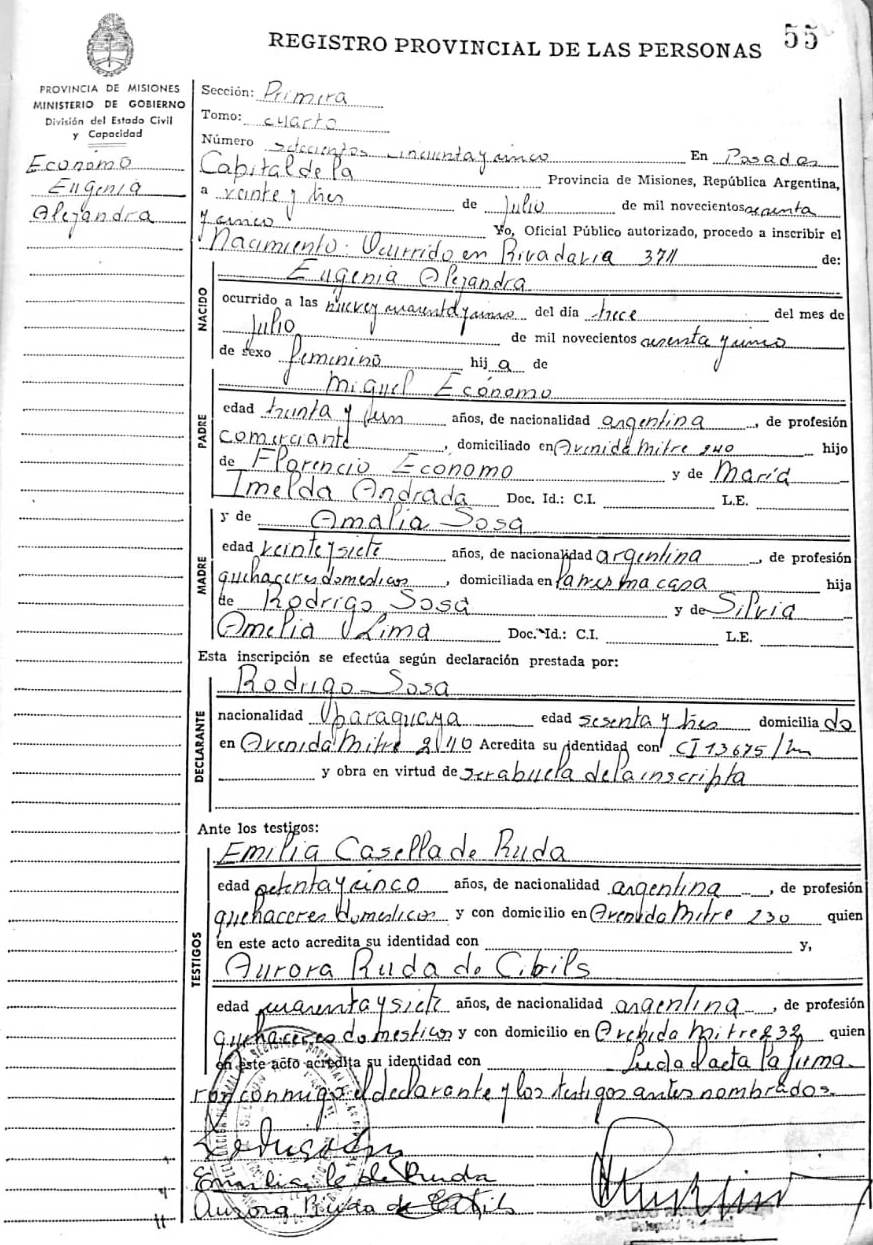 REGISTRO PROVINCIAL DE LAS PERSONAS 55
PROVINCIA DE MISIONES
MINISTERIO DE GOBIERNO
División del Estado Civil
y Capacidad
Económo
Eugenia
Alejandra
Sección: Primera
Tomo: cuarto
Número setecientos cincuenta y cinco En Posadas
Capital de la Provincia de Misiones, República Argentina,
a veinte y tres de Julio de mil novecientos sesenta
y cinco Yo, Oficial Público autorizado, procedo a inscribir el
Nacimiento: Ocurrido en Rivadavia 371 de:
NACIDO
Eugenia Alejandra
ocurrido a las nueve y cuarenta y cinco del día trece del mes de
Julio de mil novecientos sesenta y cinco
de sexo femenino hij a de
PADRE
Miguel Económo
edad treinta y un años, de nacionalidad argentina, de profesión
comerciante, domiciliado en Avenida Mitre 240 hijo
de Florencio Economo y de María
Imelda Andrada Doc. Id.: C.I. L.E.
MADRE
y de Amalia Sosa
edad veinte y siete años, de nacionalidad argentina, de profesión
quehaceres domesticos, domiciliada en la misma casa hija
de Rodrigo Sosa y de Silvia
Amelia Lima Doc. Id.: C.I. L.E.
Esta inscripción se efectúa según declaración prestada por:
DECLARANTE
Rodrigo Sosa
nacionalidad paraguaya edad sesenta y tres domicilia do
en Avenida Mitre 240 Acredita su identidad con CI 13675
y obra en virtud de ser abuelo de la inscripta
Ante los testigos:
TESTIGOS
Emilia Casella de Ruda
edad setenta y cinco años, de nacionalidad argentina, de profesión
quehaceres domesticos y con domicilio en Avenida Mitre 230 quien
en este acto acredita su identidad con y,
Aurora Ruda de Cibils
edad cuarenta y siete años, de nacionalidad argentina, de profesión
quehaceres domesticos y con domicilio en Avenida Mitre 232 quien
en este acto acredita su identidad con Leida el acta la firma
ron conmigo el declarante y los testigos antes nombrados.
Emilia C de Ruda
Aurora Ruda de Cibils